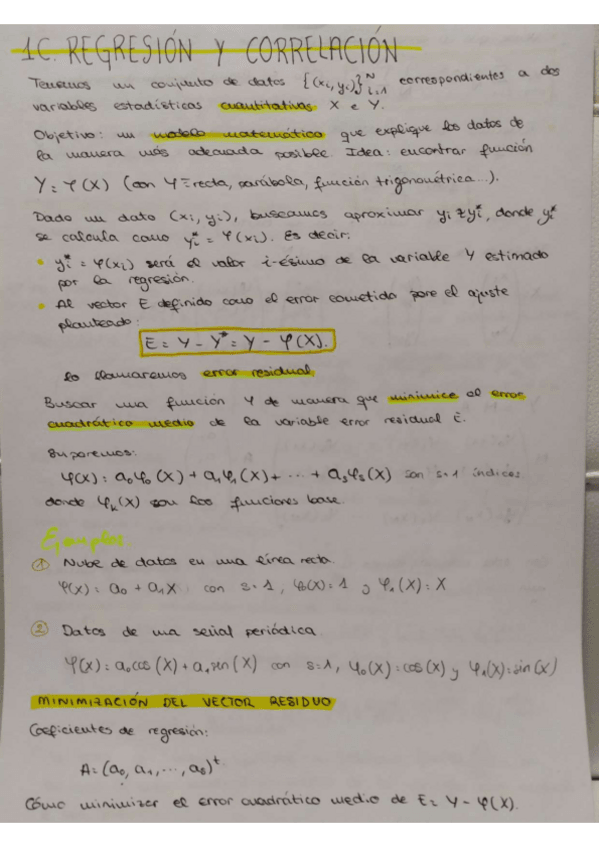 1C. REGRESIÓN Y CORRELACIÓN
Tenemos un conjunto de datos {(xi, yi)}ᴺi=1 correspondientes a dos
variables estadísticas cuantitativas X e Y.
Objetivo: un modelo matemático que explique los datos de
la manera más adecuada posible. Idea: encontrar función
Y = φ(X) (con φ = recta, parábola, función trigonométrica...).
Dado un dato (xi, yi), buscamos aproximar yi ≈ yi*, donde yi*
se calcula como yi* = φ(xi). Es decir:
• yi* = φ(xi) será el valor i-ésimo de la variable Y estimado
por la regresión.
• Al vector E definido como el error cometido pore el ajuste
planteado:
E = Y - Y* = Y - φ(X).
lo llamaremos error residual
Buscar una función φ de manera que minimice el error
cuadrático medio de la variable error residual E.
Suponemos:
φ(X) = a₀φ₀(X) + a₁φ₁(X) + ... + asφs(X) son s+1 índices
donde φk(X) son las funciones base.
Ejemplos.
① Nube de datos en una línea recta.
φ(X) = a₀ + a₁X con s=1, φ₀(X) = 1 y φ₁(X) = X
② Datos de una señal periódica.
φ(X) = a₀cos(X) + a₁sen(X) con s=1, φ₀(X) = cos(X) y φ₁(X) = sin(X)
MINIMIZACIÓN DEL VECTOR RESIDUO
Coeficientes de regresión:
A = (a₀, a₁, ..., as)ᵗ
Cómo minimizar el error cuadrático medio de E = Y - φ(X).